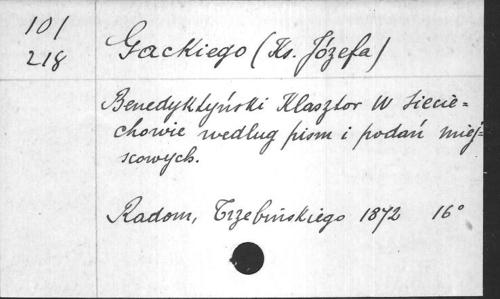 101
218
Gackiego (Ks. Józefa)
Benedyktyński Klasztor w Siecie=
chowie według pism i podań miej=
scowych.
Radom, Trzebińskiego 1872 16°